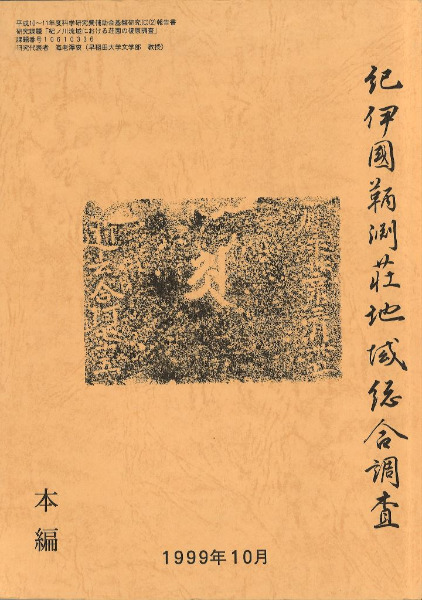 平成10〜11年度科学研究費補助金基盤研究(C)(2)報告書
研究課題「紀ノ川流域における荘園の復原調査」
課題番号10610336
研究代表者 海老澤衷(早稲田大学文学部 教授)
紀伊國鞆渕荘地域総合調査
本編
1999年10月